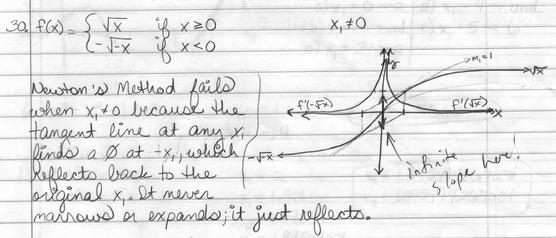 30. f(x) = { √x if x ≥ 0
{ -√-x if x < 0
x₁ ≠ 0
Newton's Method fails
when x₁ ≠ 0 because the
tangent line at any x₁
finds a 0 at -x₁, which
reflects back to the
original x₁. It never
narrows or expands; it just reflects.
y
m₁=1
√x
f'(-√x)
f'(√x)
x
-√x
infinite
slope here!